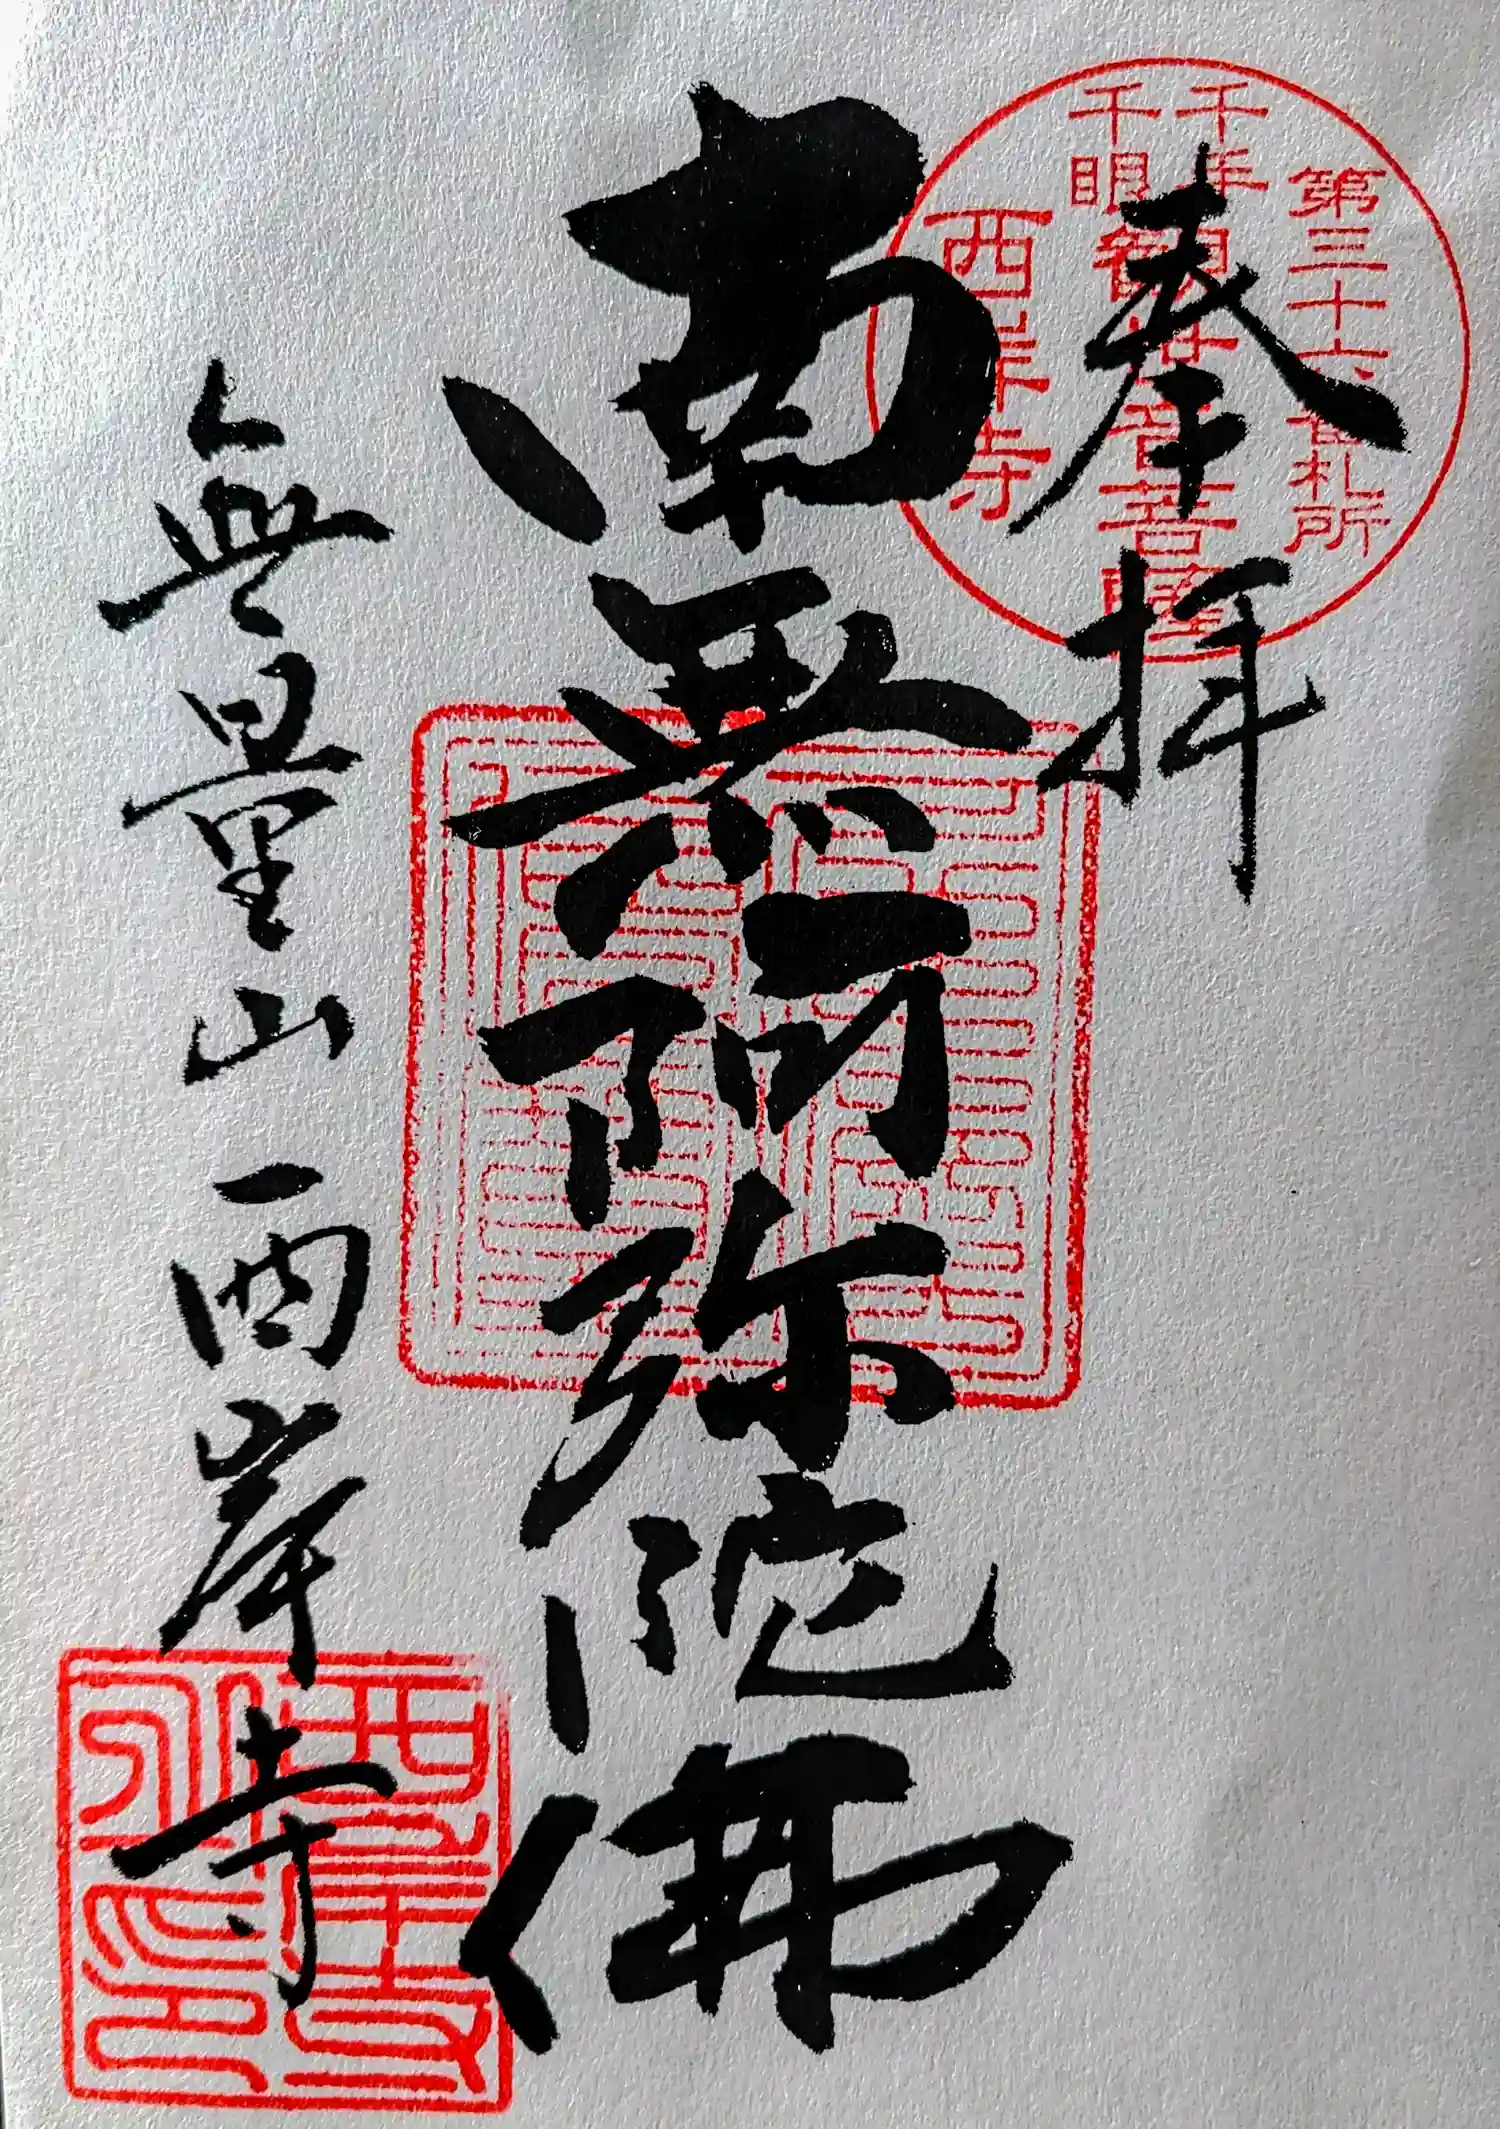 奉拝
第三十六番札所
千手
千眼
観世音菩薩
西岸寺
南無阿弥陀佛
無量山西岸寺
西岸寺